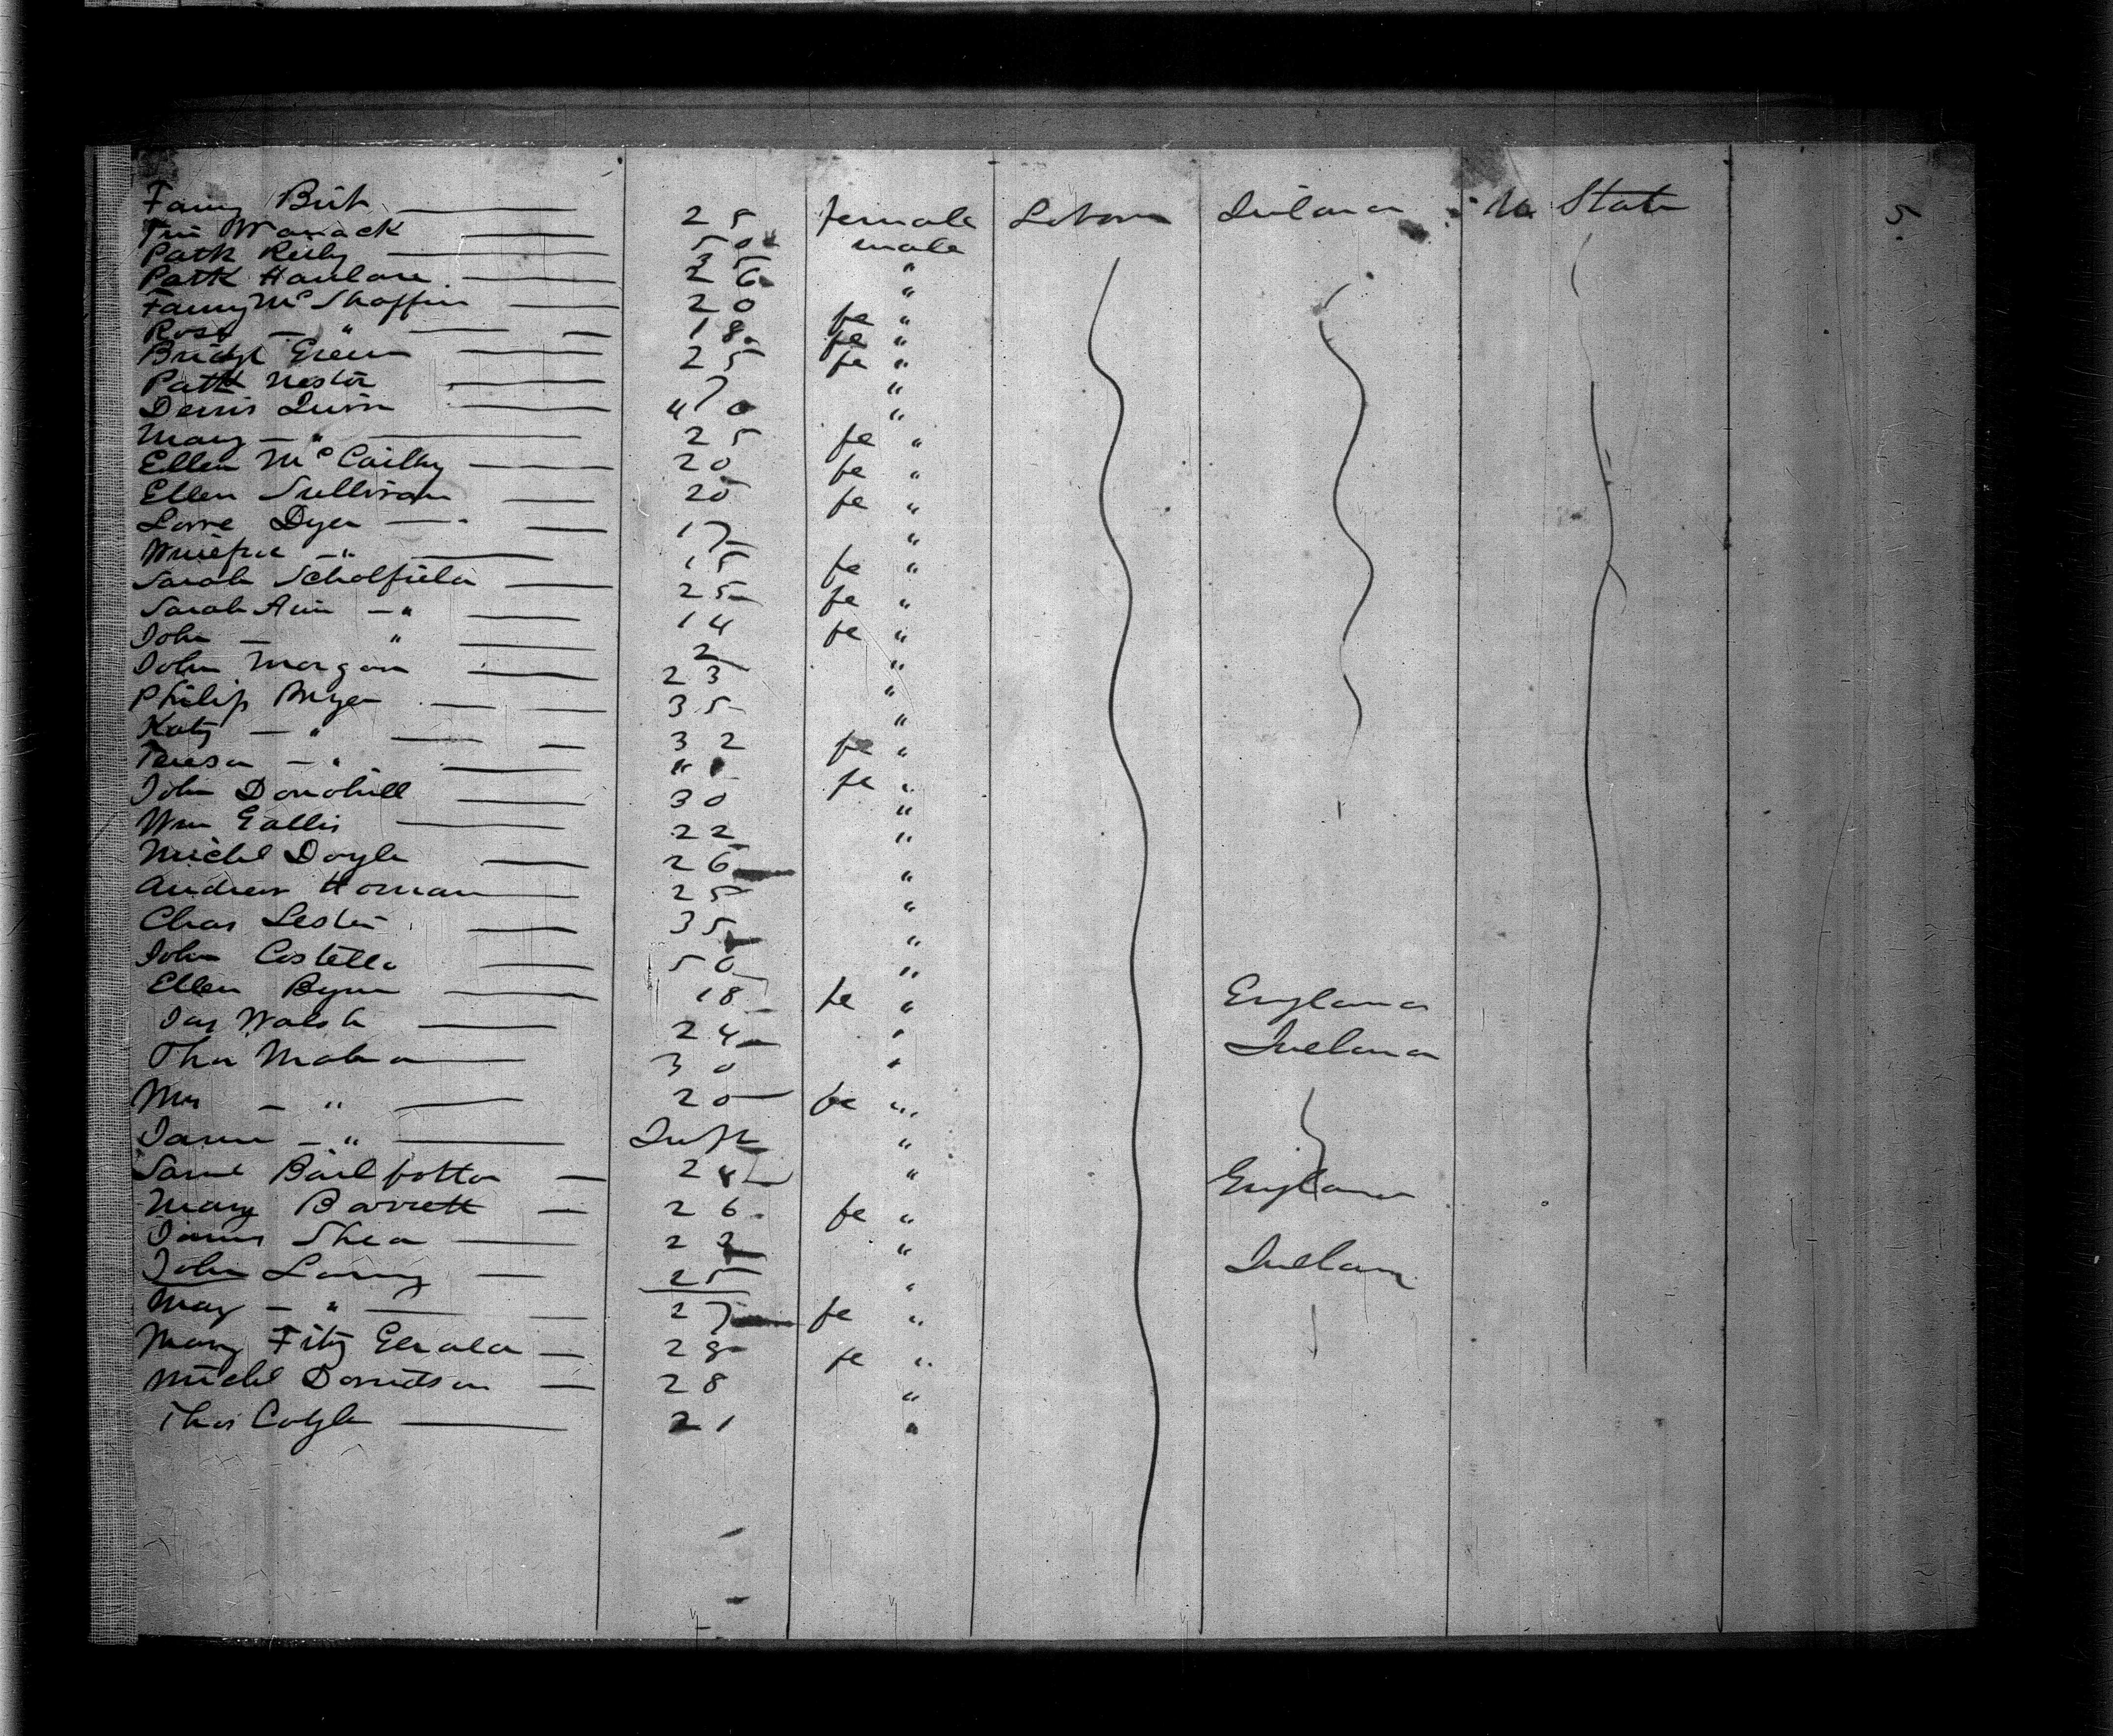 Fanny 25 female Ireland U State 5
50 male
Patk Reily 35 "
Patk Hanlan 26 "
Fanny Mc 20 fe "
Rose — " 18 fe "
Bridgt Green 25 fe "
Patk Nestor 7 "
Dennis Quinn 40 "
Mary — " 25 fe "
Ellen Mc Carthy 20 fe "
Ellen Sullivan 20 fe "
Dyer 17 "
— " 15 fe "
Sarah Scholfield 25 fe "
Sarah Ann — " 14 fe "
John — " 2 "
John Morgan 23 "
Philip 35 "
Katy — " 32 fe "
Teresa — " fe "
John Donohill 30 "
Wm Gallis 22 "
Michl Doyle 26 "
Andrew Homan 25 "
Chas Lester 35 "
John Costello 50 "
Ellen Byrne 18 fe " England
Jas Walsh 24 " Ireland
Thos 30 "
Mrs — " 20 fe "
— " Inft "
Saml 24 " England
Mary Barrett 26 fe "
James Shea 22 " Ireland
John 25 "
Mary — " 27 fe "
Mary Fitz Gerald 28 fe "
Michl 28 "
Thos 21 "